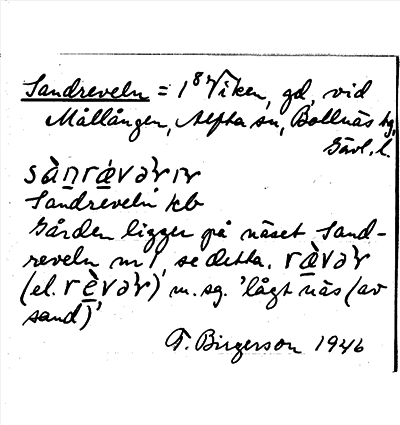 Sandreveln = 1⁸ Viken, gd, vid
Mållången, Alfta sn, Bollnäs tg,
Gävl. l.
Sandreveln kb
Gården ligger på näset Sand-
reveln nr 1, se detta. rævər
(el. revər) m. sg. 'lågt näs (av
sand)'
T. Birgerson 1946